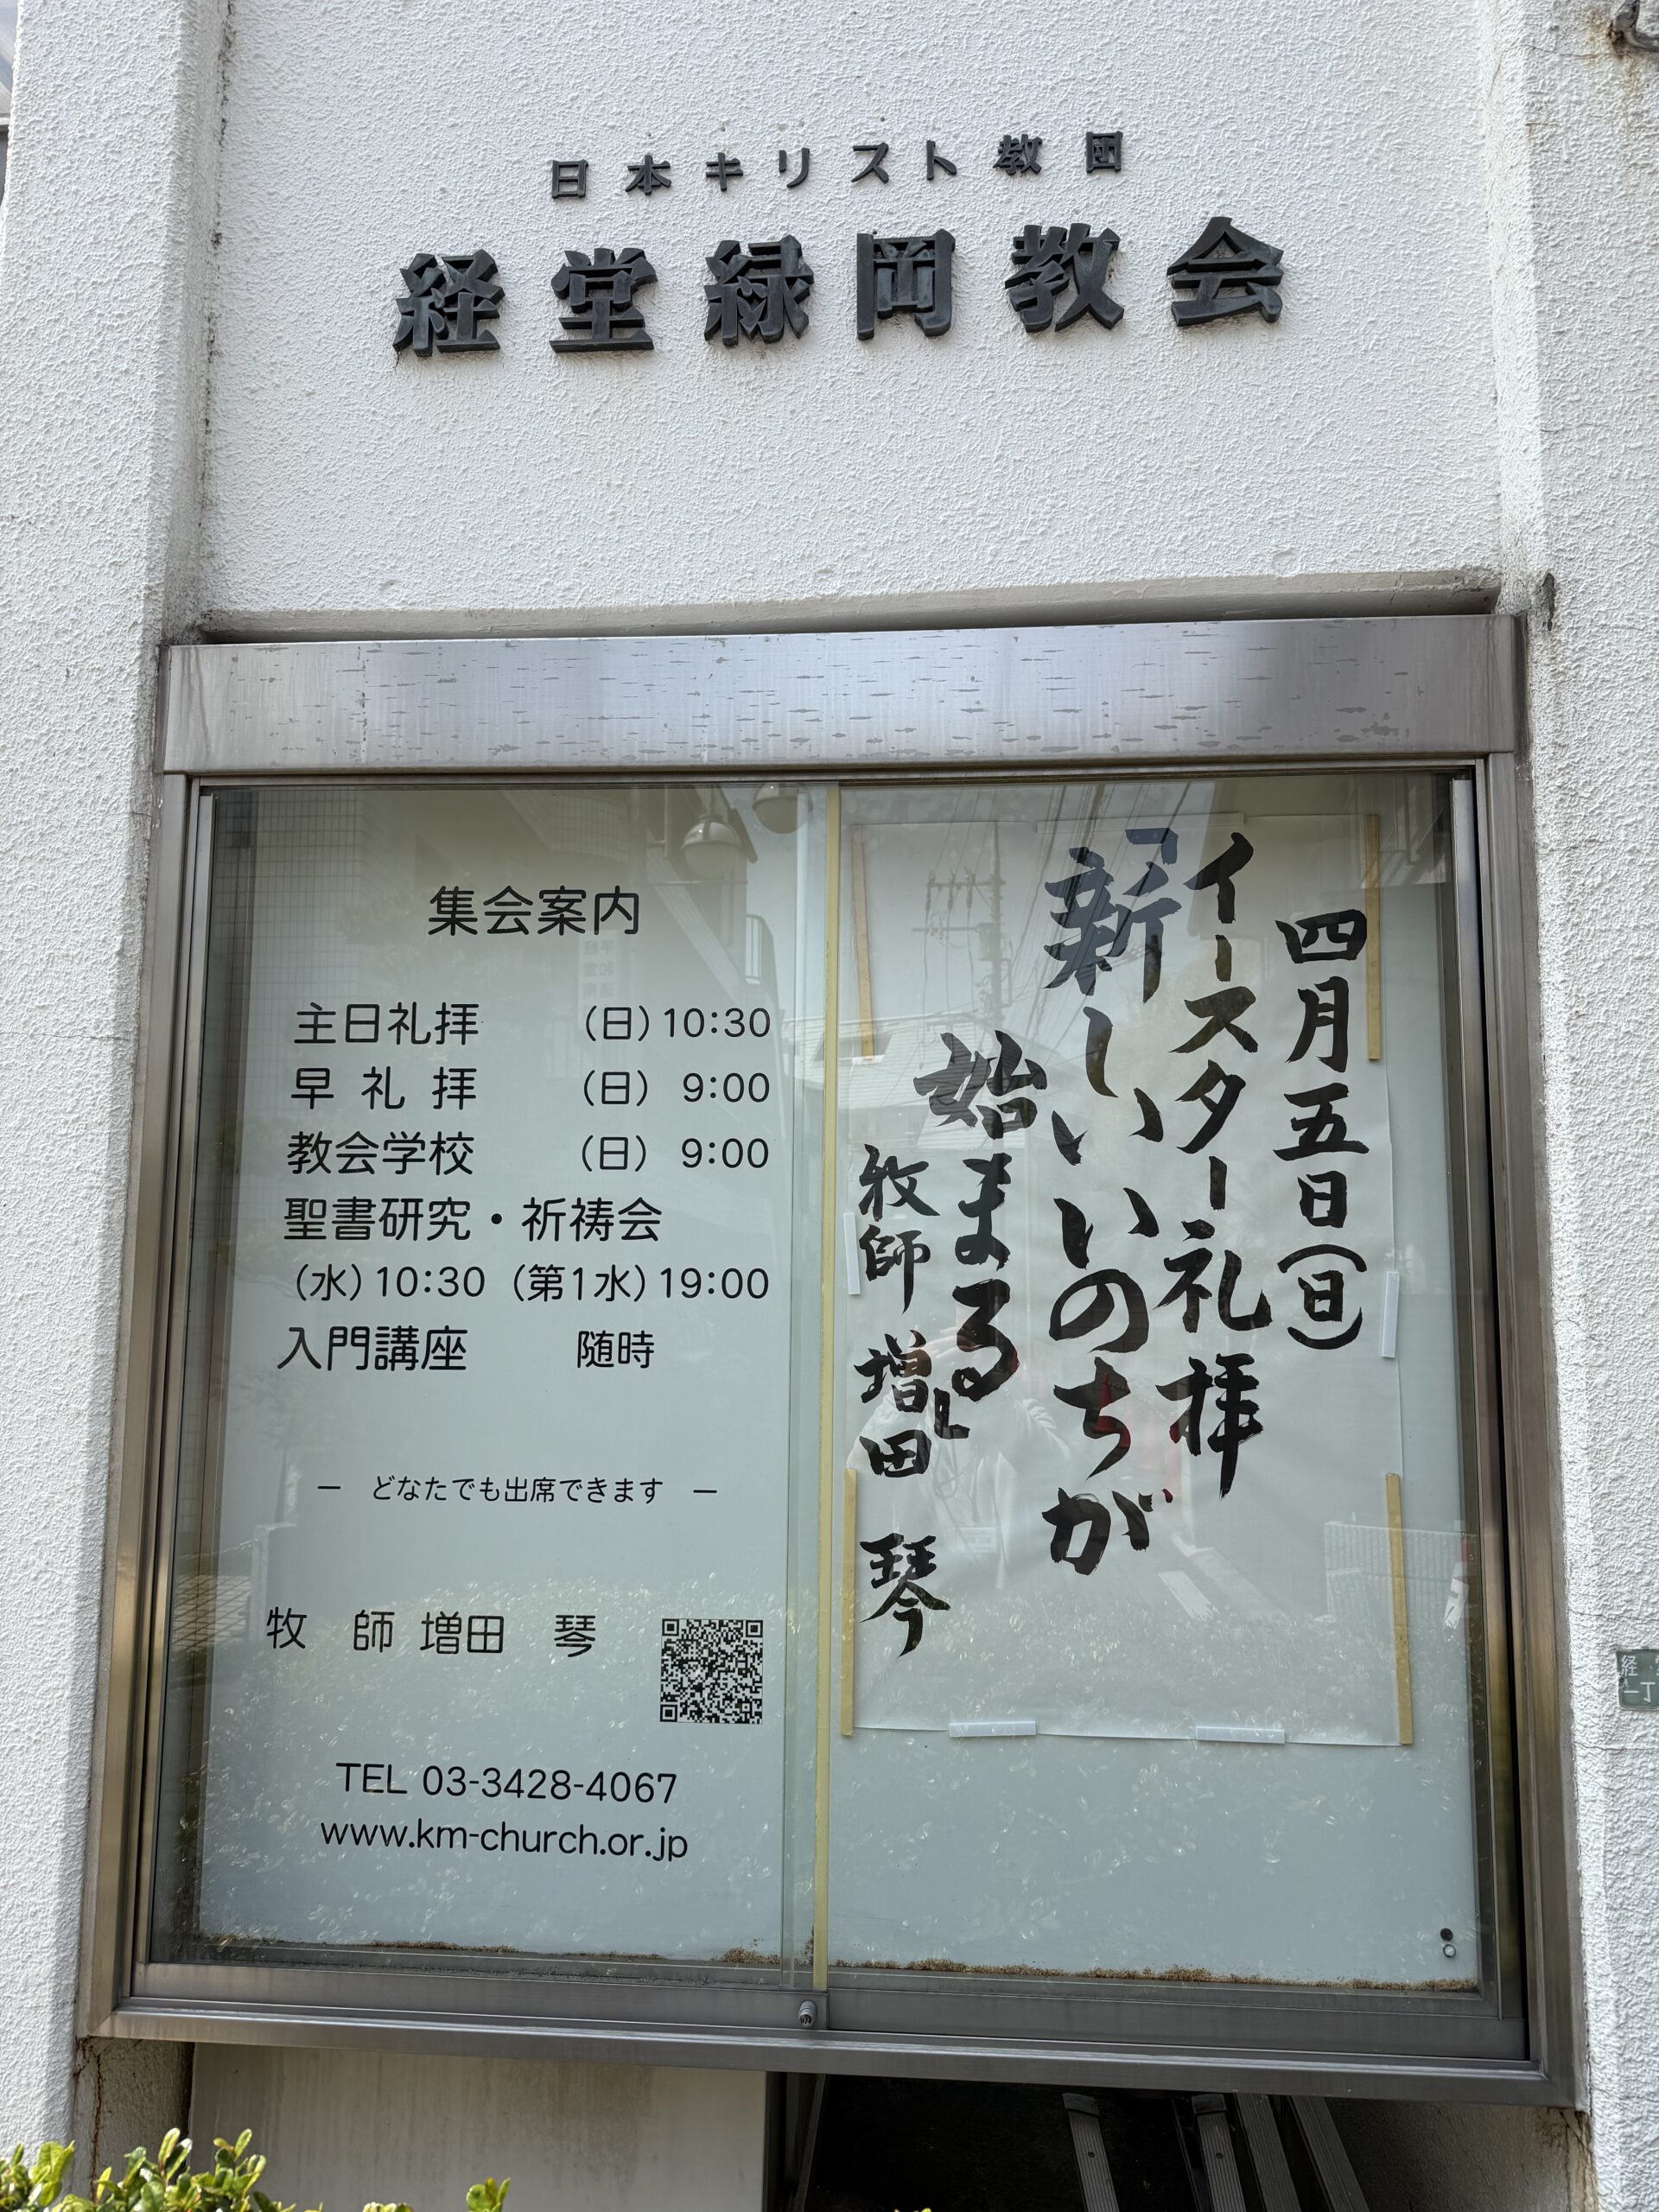 日本キリスト教団
経堂緑岡教会
集会案内
主日礼拝 (日) 10:30
早礼拝 (日) 9:00
教会学校 (日) 9:00
聖書研究・祈祷会
(水) 10:30 (第1水) 19:00
入門講座 随時
― どなたでも出席できます ―
牧 師 増田 琴
TEL 03-3428-4067
www.km-church.or.jp
四月五日(日)
イースター礼拝
「新しいいのちが
始まる」
牧師 増田 琴